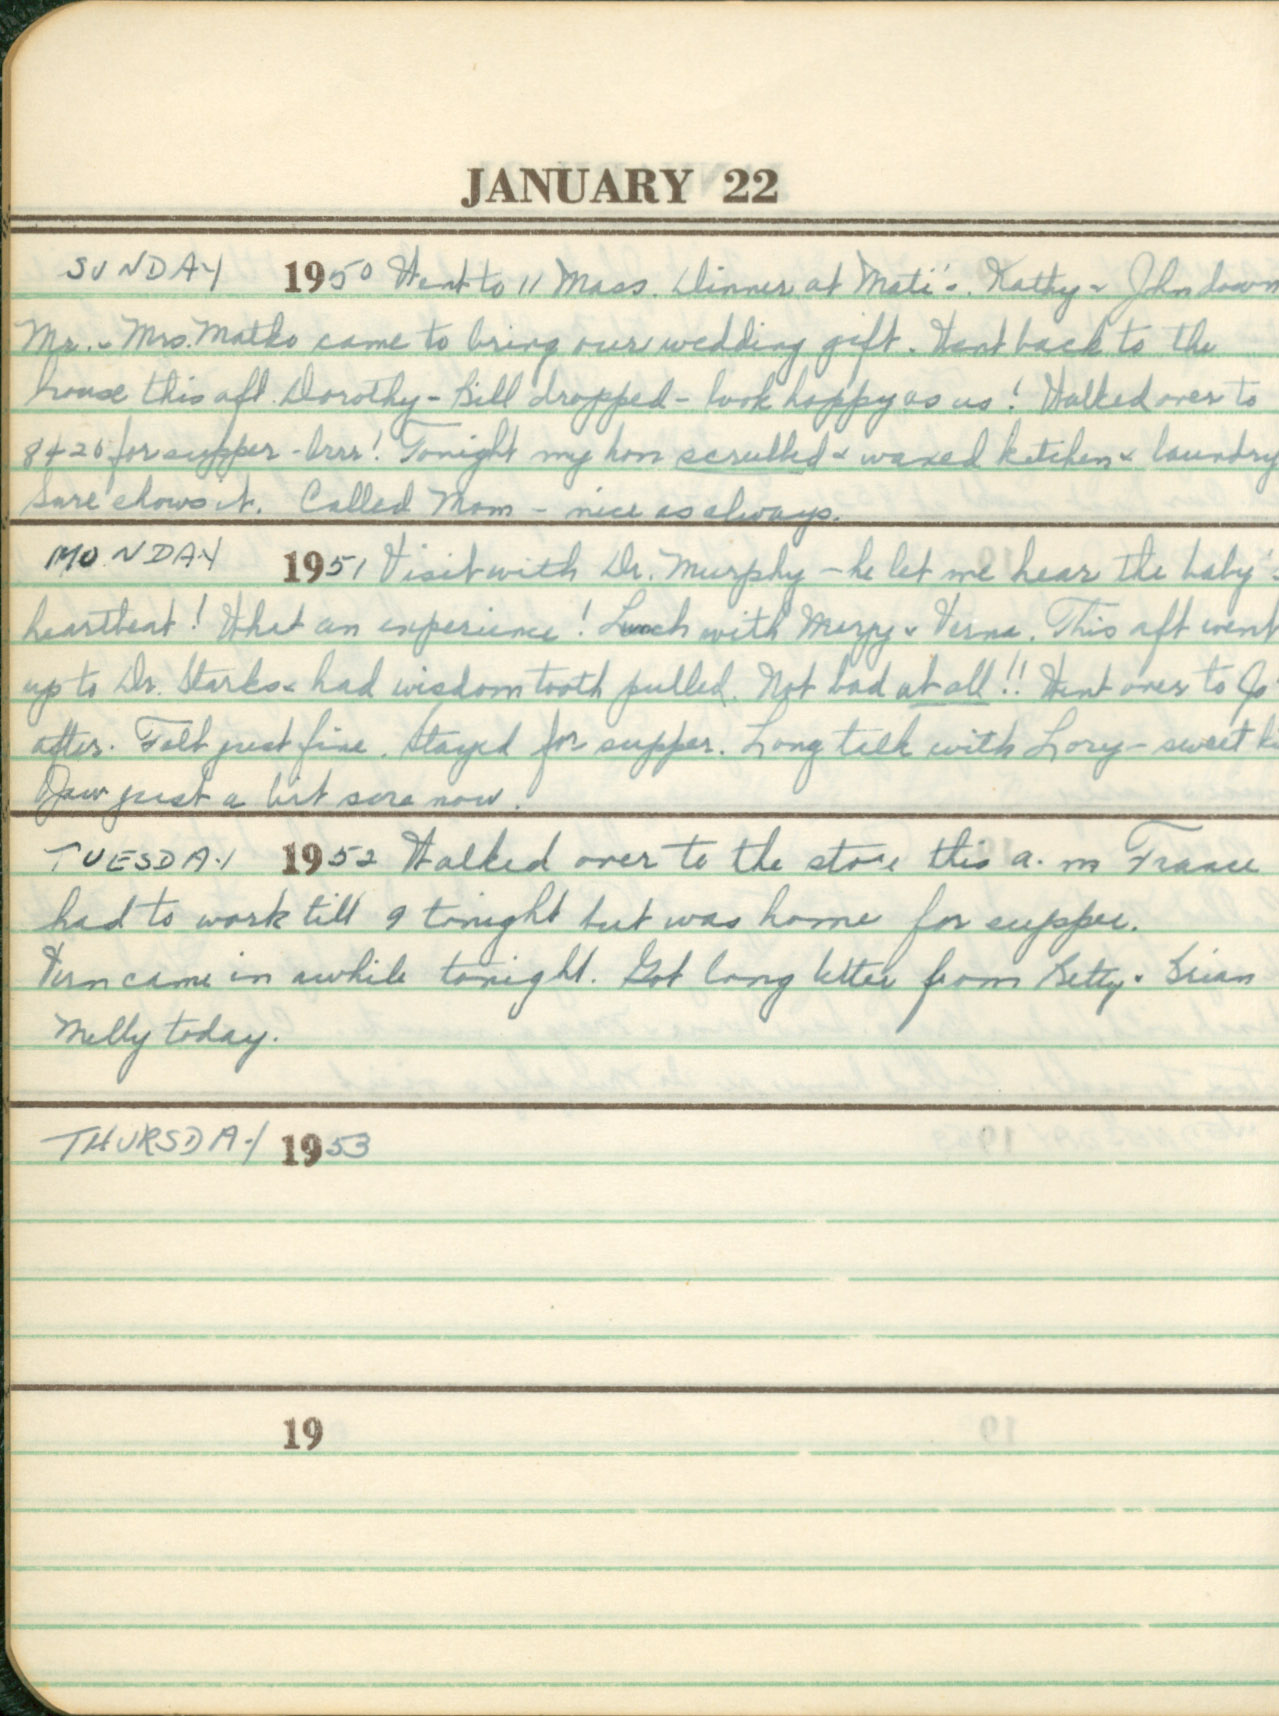 JANUARY 22
SUNDAY 1950 Went to 11 Mass. Dinner at Mati's. Kathy & John down
Mr. & Mrs. Matko came to bring our wedding gift. Went back to the
house this aft. Dorothy - Bill dropped - look happy as us! Walked over to
8420 for supper - brrr! Tonight my hon scrubbed & waxed kitchen & laundry
Sure shows it. Called Mom - nice as always.
MONDAY 1951 Visit with Dr. Murphy - he let me hear the baby's
heartbeat! What an experience! Lunch with Mezzy & Verna. This aft went
up to Dr. Starks & had wisdom tooth pulled. Not bad at all!! Went over to Jo's
after. Felt just fine. Stayed for supper. Long talk with Lory - sweet
Jaw just a bit sore now.
TUESDAY 1952 Walked over to the store this a.m
had to work till 9 tonight but was home for supper.
Vern came in awhile tonight. Got long letter from Betty & Brian
Melly today.
THURSDAY 1953
19